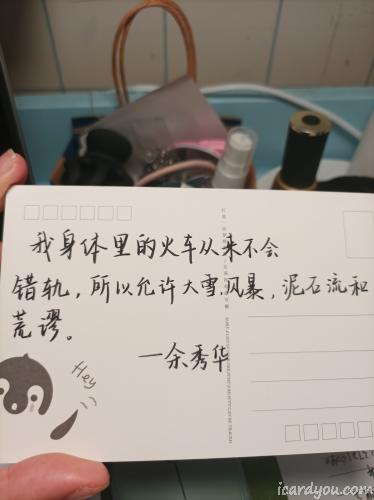 我身体里的火车从来不会
错轨，所以允许大雪、风暴，泥石流和
荒谬。
—余秀华
Hey
icardyou.com